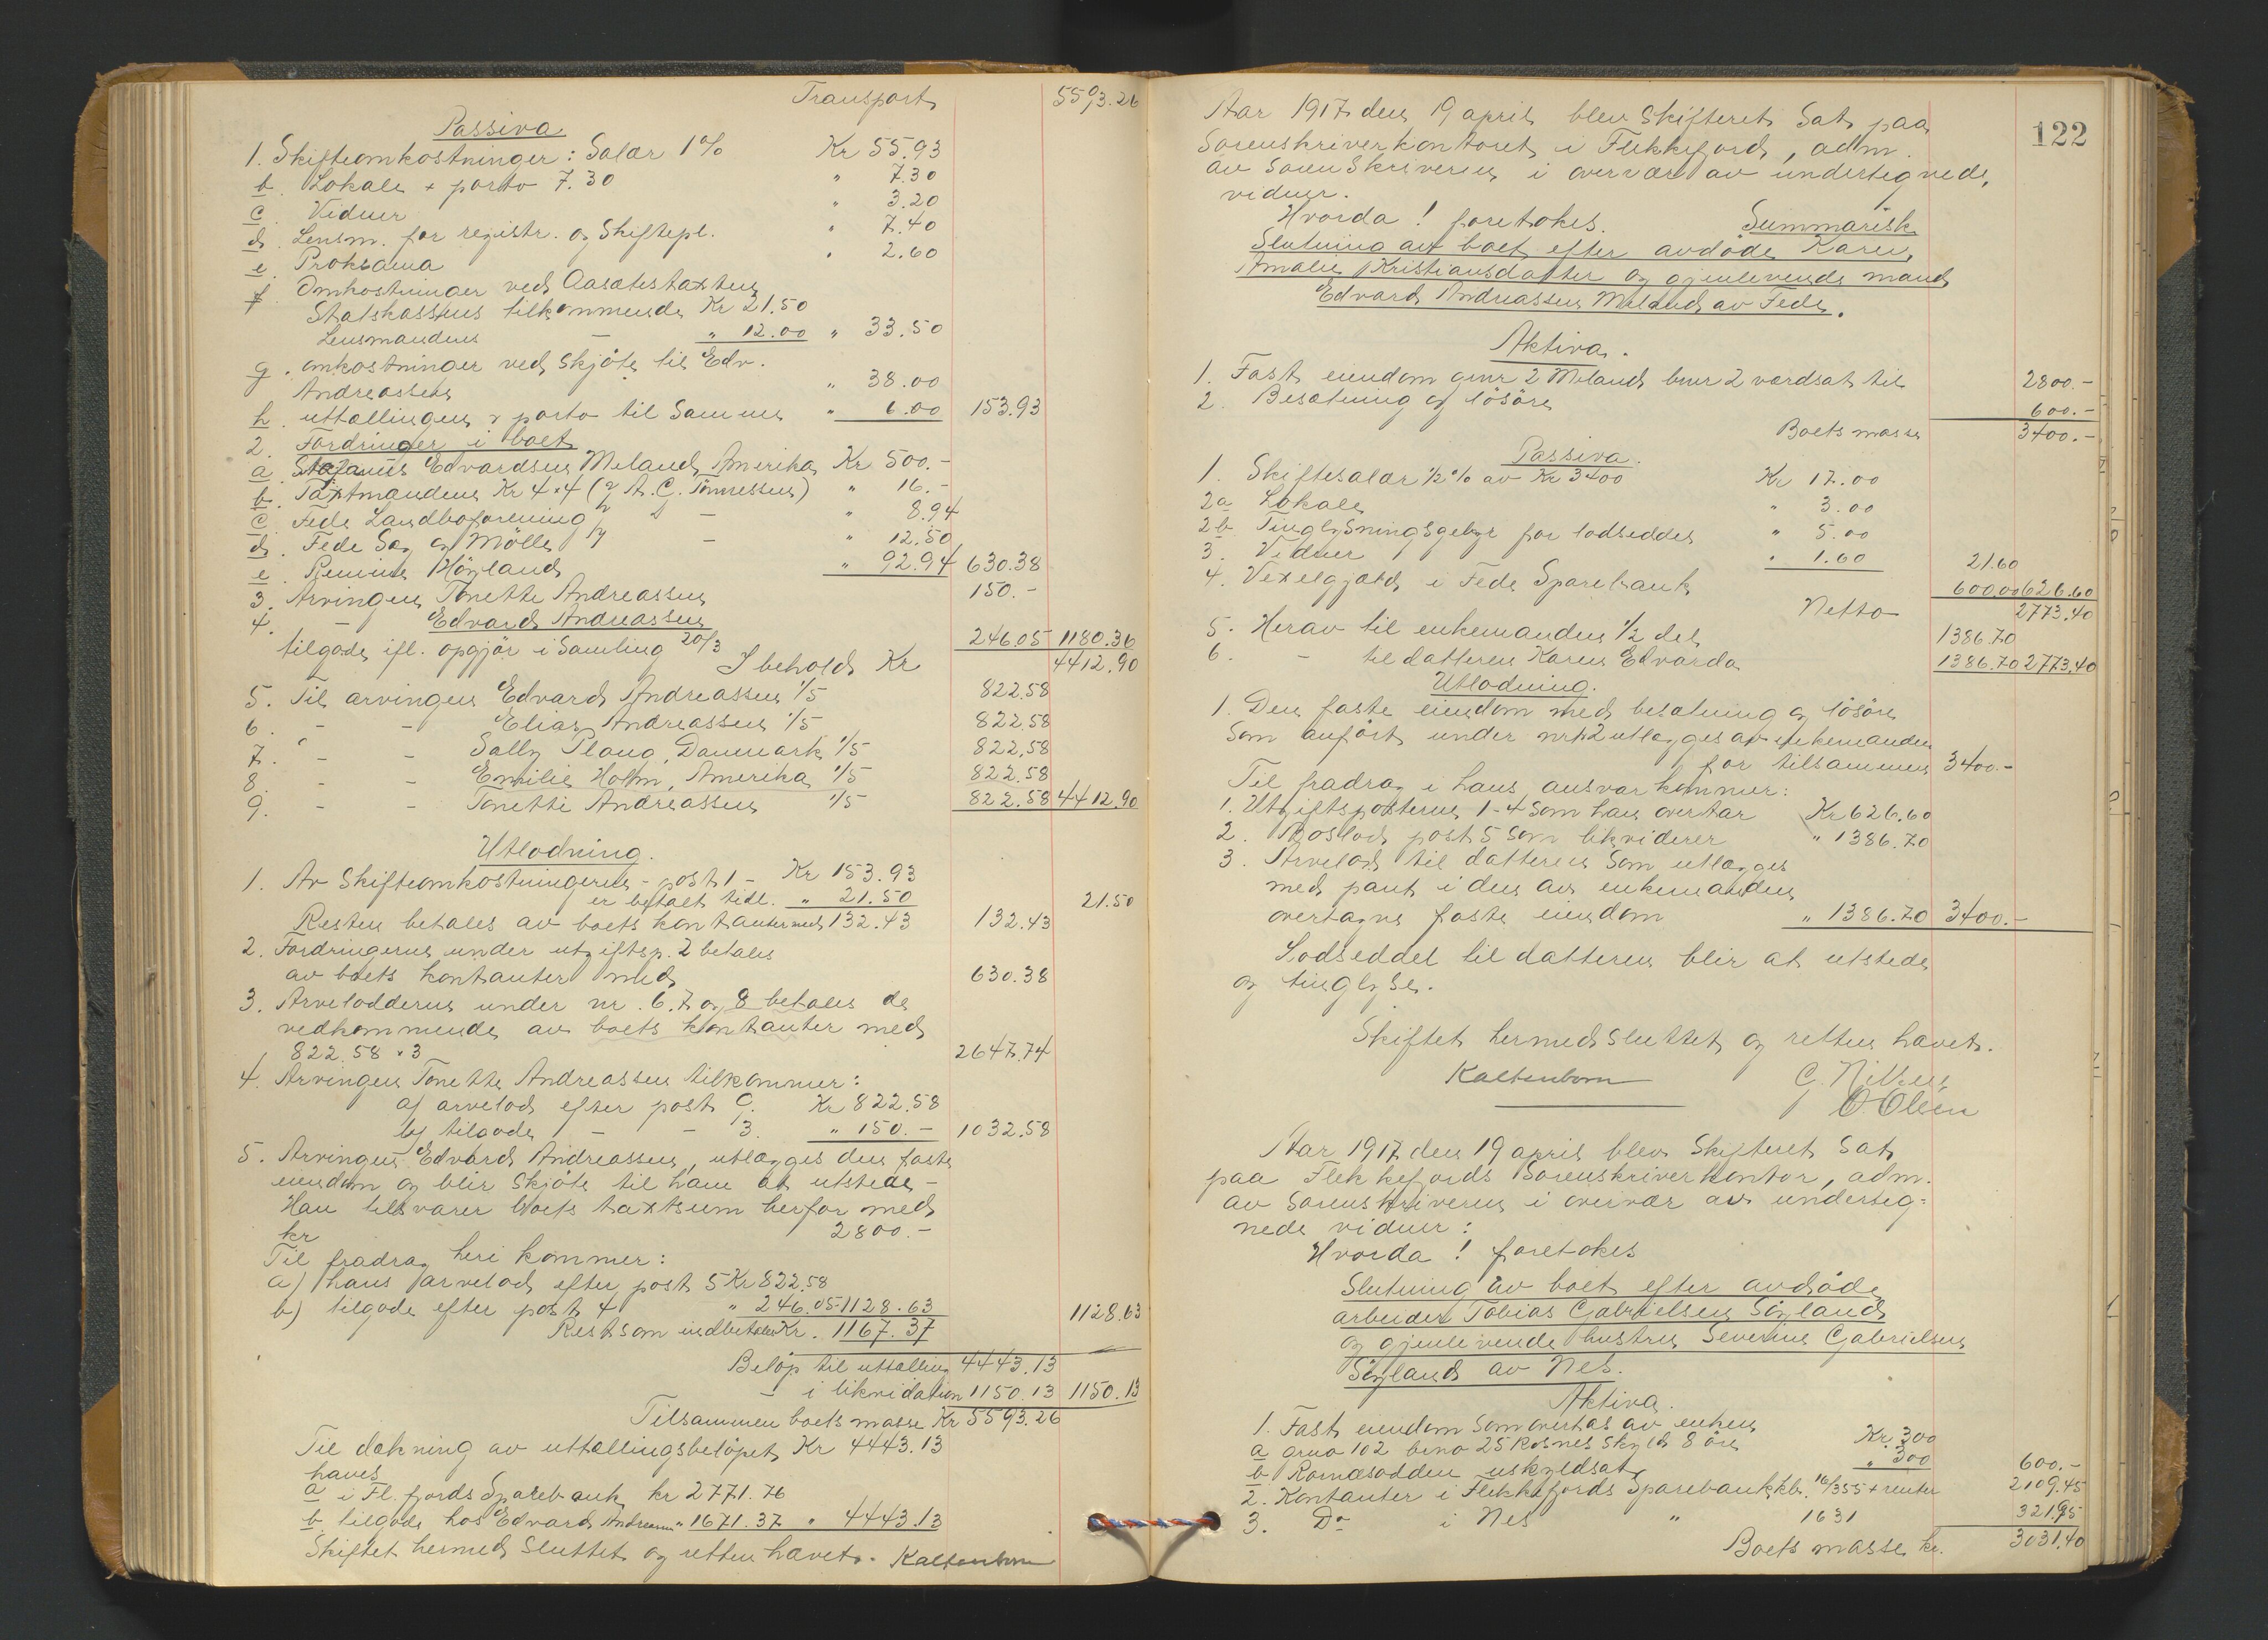 Transport 5593.26
Passiva
1. Skifteomkostninger: Salær 1% Kr 55.93
b. Lokale + porto 7.30 " 7.30
c. Vidner " 3.20
d. Lensm. for registr. og Skiftepl. " 7.40
e. Proklama " 2.60
f. Omkostninger ved Aasætestaxten
Statskassens tilkommende Kr 21.50
Lensmandens — " 12.00 " 33.50
g. omkostninger ved skjøte til Edv.
Andreassen " 38.00
h. uttallingen & porto til Samme " 6.00 153.93
2. Fordringer i boet
a. Stefanus Edvardsen Meland, Amerika Kr 500.-
b. Taxtmændene Kr 4×4 (v/ A. G. Tønnessen) " 16.-
c. Fede Landboforening v/ — " 8.94
d. Fede Sag og Mølle v/ — " 12.50
e. Remine Høyland " 92.94 630.38
3. Arvingen Tonette Andreassen 150.-
4. — Edvard Andreassen
tilgode ifl. opgjør i Samling 20/3 246.05 1180.36
I behold Kr 4412.90
5. Til arvingen Edvard Andreassen 1/5 822.58
6. - - Elias Andreassen 1/5 822.58
7. - - Sally Plaug, Danmark 1/5 822.58
8. - - Emilie Holm, Amerika 1/5 822.58
9. - - Tonette Andreassen 1/5 822.58 4412.90
Utlodning.
1. Av Skifteomkostningerne - post 1 - Kr 153.93
er betalt tidl. " 21.50 21.50
Resten betales av boets kontanter med 132.43 132.43
2. Fordringerne under utgiftsp. 2 betales
av boets kontanter med 630.38
3. Arvelodderne under nr. 6.7 og 8 betales de
vedkommende av boets kontanter med
822.58 × 3 2647.74
4. Arvingen Tonette Andreassen tilkommer:
a) arvelod efter post 9. Kr 822.58
b) tilgode — - 3. " 150.- 1032.58
5. Arvingen Edvard Andreassen, utlægges den faste
eiendom og blir Skjøte til ham at utstede -
Han tilsvarer boets taxtsum herfor med
kr 2800.-
Til fradrag heri kommer:
a) hans arvelod efter post 5 Kr 822.58
b) tilgode efter post 4 " 246.05 1128.63 1128.63
Rest som indbetales Kr. 1167.37
Beløp til uttalling 4443.13
- i likvidation 1150.13 1150.13
Tilsammen boets masse Kr 5593.26
Til dækning av uttallingsbeløpet Kr 4443.13
haves
a i Fl.fjords Sparebank kr 2771.76
b. tilgode hos Edvard Andreassen " 1671.37 " 4443.13
Skiftet hermed Sluttet og retten hævet. Kaltenborn
122
Aar 1917 den 19 april blev Skifteret Sat paa
Sorenskriverkontoret i Flekkefjord, adm.
av Sorenskriveren i overvær av undertegnede
vidner.
Hvorda! foretokes. Summarisk
Slutning av boet efter avdøde Karen
Amalie Kristiansdatter og gjenlevende mand
Edvard Andreassen Meland av Fede.
Aktiva.
1. Fast eiendom gnr 2 Meland bnr 2 værdsat til 2800.-
2. Besætning og løsøre 600.-
Boets masse 3400.-
Passiva.
1. Skiftesalær 1/2% av Kr 3400 Kr 17.00
2a Lokale " 3.00
2b Tinglysningsgebyr for lodseddel " 5.00
3. Vidner " 1.60 21.60
4. Vexelgjæld i Fede Sparebank 600.00 626.60
Netto 2773.40
5. Herav til enkemanden 1/2 del 1386.70
6. - til datteren Karen Edvarda 1386.70 2773.40
Utlodning.
1. Den faste eiendom med besætning og løsøre
Som anført under nr 1-2 utlægges av enkemanden
for tilsammen 3400.-
Til fradrag i hans ansvar kommer:
1. Utgiftsposterne 1-4 som han overtar Kr 626.60
2. Boslod post 5 som likviderer " 1386.70
3. Arvelod til datteren Som utlægges
med pant i den av enkemanden
overtagne faste eiendom " 1386.70 3400.-
Lodseddel til datteren blir at utstede
og tinglyse.
Skiftet hermed sluttet og retten hævet.
Kaltenborn C. Nilsen
O. Olsen
Aar 1917 den 19 april blev Skifteret Sat
paa Flekkefjords Sorenskriverkontor, adm.
av Sorenskriveren i overvær av underteg-
nede vidner:
Hvorda! foretokes
Slutning av boet efter avdøde
arbeider Tobias Gabrielsen Søyland
og gjenlevende hustru Severine Gabrielsen
Søyland av Nes.
Aktiva.
1. Fast eiendom som overtas av enken
a gno 102 bno 25 Rosnes Skyld 8 øre Kr. 300
b Ramsodden uskyldsat " 300 600.-
2. Kontanter i Flekkefjords Sparebank kb. 16/355 + renter 2109.45
3. Do i Nes " 1631 321.95
Boets masse kr. 3031.40